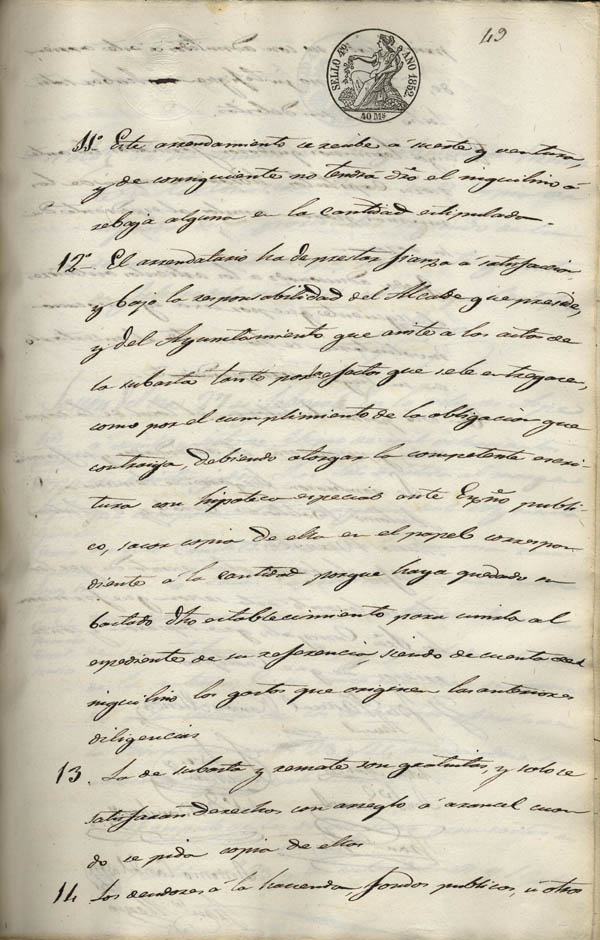 49
SELLO 4º AÑO 1852
40 Ms
11º Este arrendamiento se recibe á suerte y ventura,
y de consiguiente no tendra dro el inquilino á
rebaja alguna en la cantidad estipulada.
12º El arrendatario ha de prestar fianza á satisfacion
y bajo la responsabilidad del Alcalde que preside,
y del Ayuntamiento que asiste á los actos de
la subasta tanto por efectos que se le entregase,
como por el cumplimiento de la obligacion que
contraiga, debiendo otorgar la competente escri
tura con hipoteca especial ante Esño publi
co, sacar copia de ella en el papel correspon
diente á la cantidad porque haya quedado su
bastado dho establecimiento para unirla al
espediente de su referencia, siendo de cuenta del
inquilino los gastos que originen las anteriores
diligencias
13. La de subasta y remate son gratuitas, y solo se
satisfacan derechos con arreglo á arancel cuan
do se pida copia de ellas
14 Los deudores á la hacienda fondos publicos, ú otros